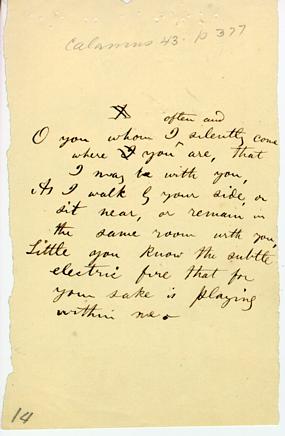 Calamus 43. p 377
X often and
O you whom I silently come
where I you ^ are, that
I may be with you,
As I walk by your side, or
sit near, or remain in
the same room with you,
Little you know the subtle
electric fire that for
your sake is playing
within me.
14